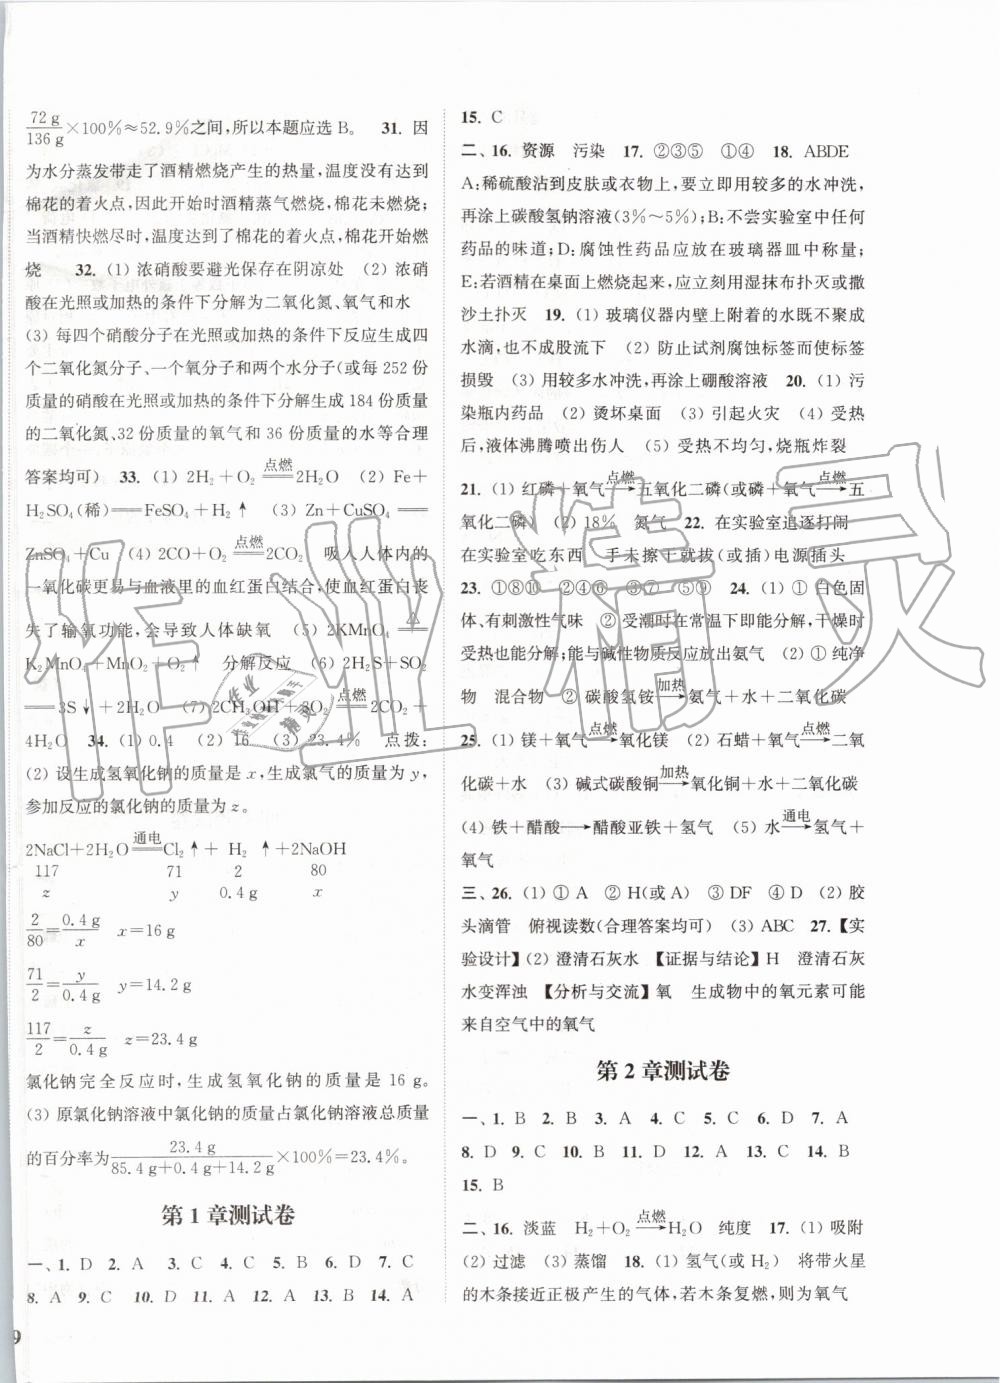 72 g/136 g×100%≈52.9%之间,所以本题应选 B。 31. 因
为水分蒸发带走了酒精燃烧产生的热量,温度没有达到
棉花的着火点,因此开始时酒精蒸气燃烧,棉花未燃烧;
当酒精快燃尽时,温度达到了棉花的着火点,棉花开始燃
烧 32. (1) 浓硝酸要避光保存在阴凉处 (2) 浓硝
酸在光照或加热的条件下分解为二氧化氮、氧气和水
(3) 每四个硝酸分子在光照或加热的条件下反应生成四
个二氧化氮分子、一个氧分子和两个水分子(或每 252 份
质量的硝酸在光照或加热的条件下分解生成 184 份质量
的二氧化氮、32 份质量的氧气和 36 份质量的水等合理
答案均可) 33. (1) 2H₂+O₂ 点燃═ 2H₂O (2) Fe+
H₂SO₄(稀)═FeSO₄+H₂↑ (3) Zn+CuSO₄═
ZnSO₄+Cu (4) 2CO+O₂ 点燃═ 2CO₂ 吸入人体内的
一氧化碳更易与血液里的血红蛋白结合,使血红蛋白丧
失了输氧功能,会导致人体缺氧 (5) 2KMnO₄ △═
K₂MnO₄+MnO₂+O₂↑ 分解反应 (6) 2H₂S+SO₂
═3S↓+2H₂O (7) 2CH₃OH+3O₂ 点燃═ 2CO₂+
4H₂O 34. (1) 0.4 (2) 16 (3) 23.4% 点拨:
(2) 设生成氢氧化钠的质量是 x,生成氯气的质量为 y,
参加反应的氯化钠的质量为 z。
2NaCl+2H₂O 通电═ Cl₂↑+ H₂ ↑+2NaOH
117 71 2 80
z y 0.4 g x
2/80=0.4 g/x x=16 g
71/2=y/0.4 g y=14.2 g
117/2=z/0.4 g z=23.4 g
氯化钠完全反应时,生成氢氧化钠的质量是 16 g。
(3) 原氯化钠溶液中氯化钠的质量占氯化钠溶液总质量
的百分率为23.4 g/85.4 g+0.4 g+14.2 g×100%=23.4%。
第 1 章测试卷
一、1. D 2. A 3. C 4. C 5. B 6. D 7. C
8. A 9. C 10. D 11. A 12. A 13. B 14. A
15. C
二、16. 资源 污染 17. ②③⑤ ①④ 18. ABDE
A:稀硫酸沾到皮肤或衣物上,要立即用较多的水冲洗,
再涂上碳酸氢钠溶液(3%~5%);B:不尝实验室中任何
药品的味道;D:腐蚀性药品应放在玻璃器皿中称量;
E:若洒出的酒精在桌面上燃烧起来,应立刻用湿抹布扑灭或撒
沙土扑灭 19. (1) 玻璃仪器内壁上附着的水既不聚成
水滴,也不成股流下 (2) 防止试剂腐蚀标签而使标签
损毁 (3) 用较多水冲洗,再涂上硼酸溶液 20. (1) 污
染瓶内药品 (2) 烫坏桌面 (3) 引起火灾 (4) 受热
后,液体沸腾喷出伤人 (5) 受热不均匀,烧瓶炸裂
21. (1) 红磷+氧气 点燃→ 五氧化二磷(或磷+氧气 点燃→ 五
氧化二磷) (2) 18% 氮气 22. 在实验室追逐打闹
在实验室吃东西 手未擦干就拔(或插)电源插头
23. ①⑧⑩ ②④ ③⑥ ③⑦ ⑤⑨ 24. (1) ① 白色固
体、有刺激性气味 ② 受潮时在常温下即能分解,干燥时
受热也能分解;能与碱性物质反应放出氨气 (2) ① 纯净
物 混合物 ② 碳酸氢铵 加热→ 氨气+水+二氧化碳
25. (1) 镁+氧气 点燃→ 氧化镁 (2) 石蜡+氧气 点燃→ 二氧
化碳+水 (3) 碱式碳酸铜 加热→ 氧化铜+水+二氧化碳
(4) 铁+醋酸→醋酸亚铁+氢气 (5) 水 通电→ 氢气+
氧气
三、26. (1) ① A ② H(或 A) ③ DF ④ D (2) 胶
头滴管 俯视读数(合理答案均可) (3) ABC 27.【实
验设计】(2) 澄清石灰水 【证据与结论】H 澄清石灰
水变浑浊 【分析与交流】氧 生成物中的氧元素可能
来自空气中的氧气
第 2 章测试卷
一、1. B 2. B 3. A 4. C 5. C 6. D 7. A
8. D 9. C 10. B 11. D 12. A 13. C 14. B
15. B
二、16. 淡蓝 H₂+O₂ 点燃→ H₂O 纯度 17. (1) 吸附
(2) 过滤 (3) 蒸馏 18. (1) 氢气(或 H₂) 将带火星
的木条接近正极产生的气体,若木条复燃,则为氧气
9
作业精灵